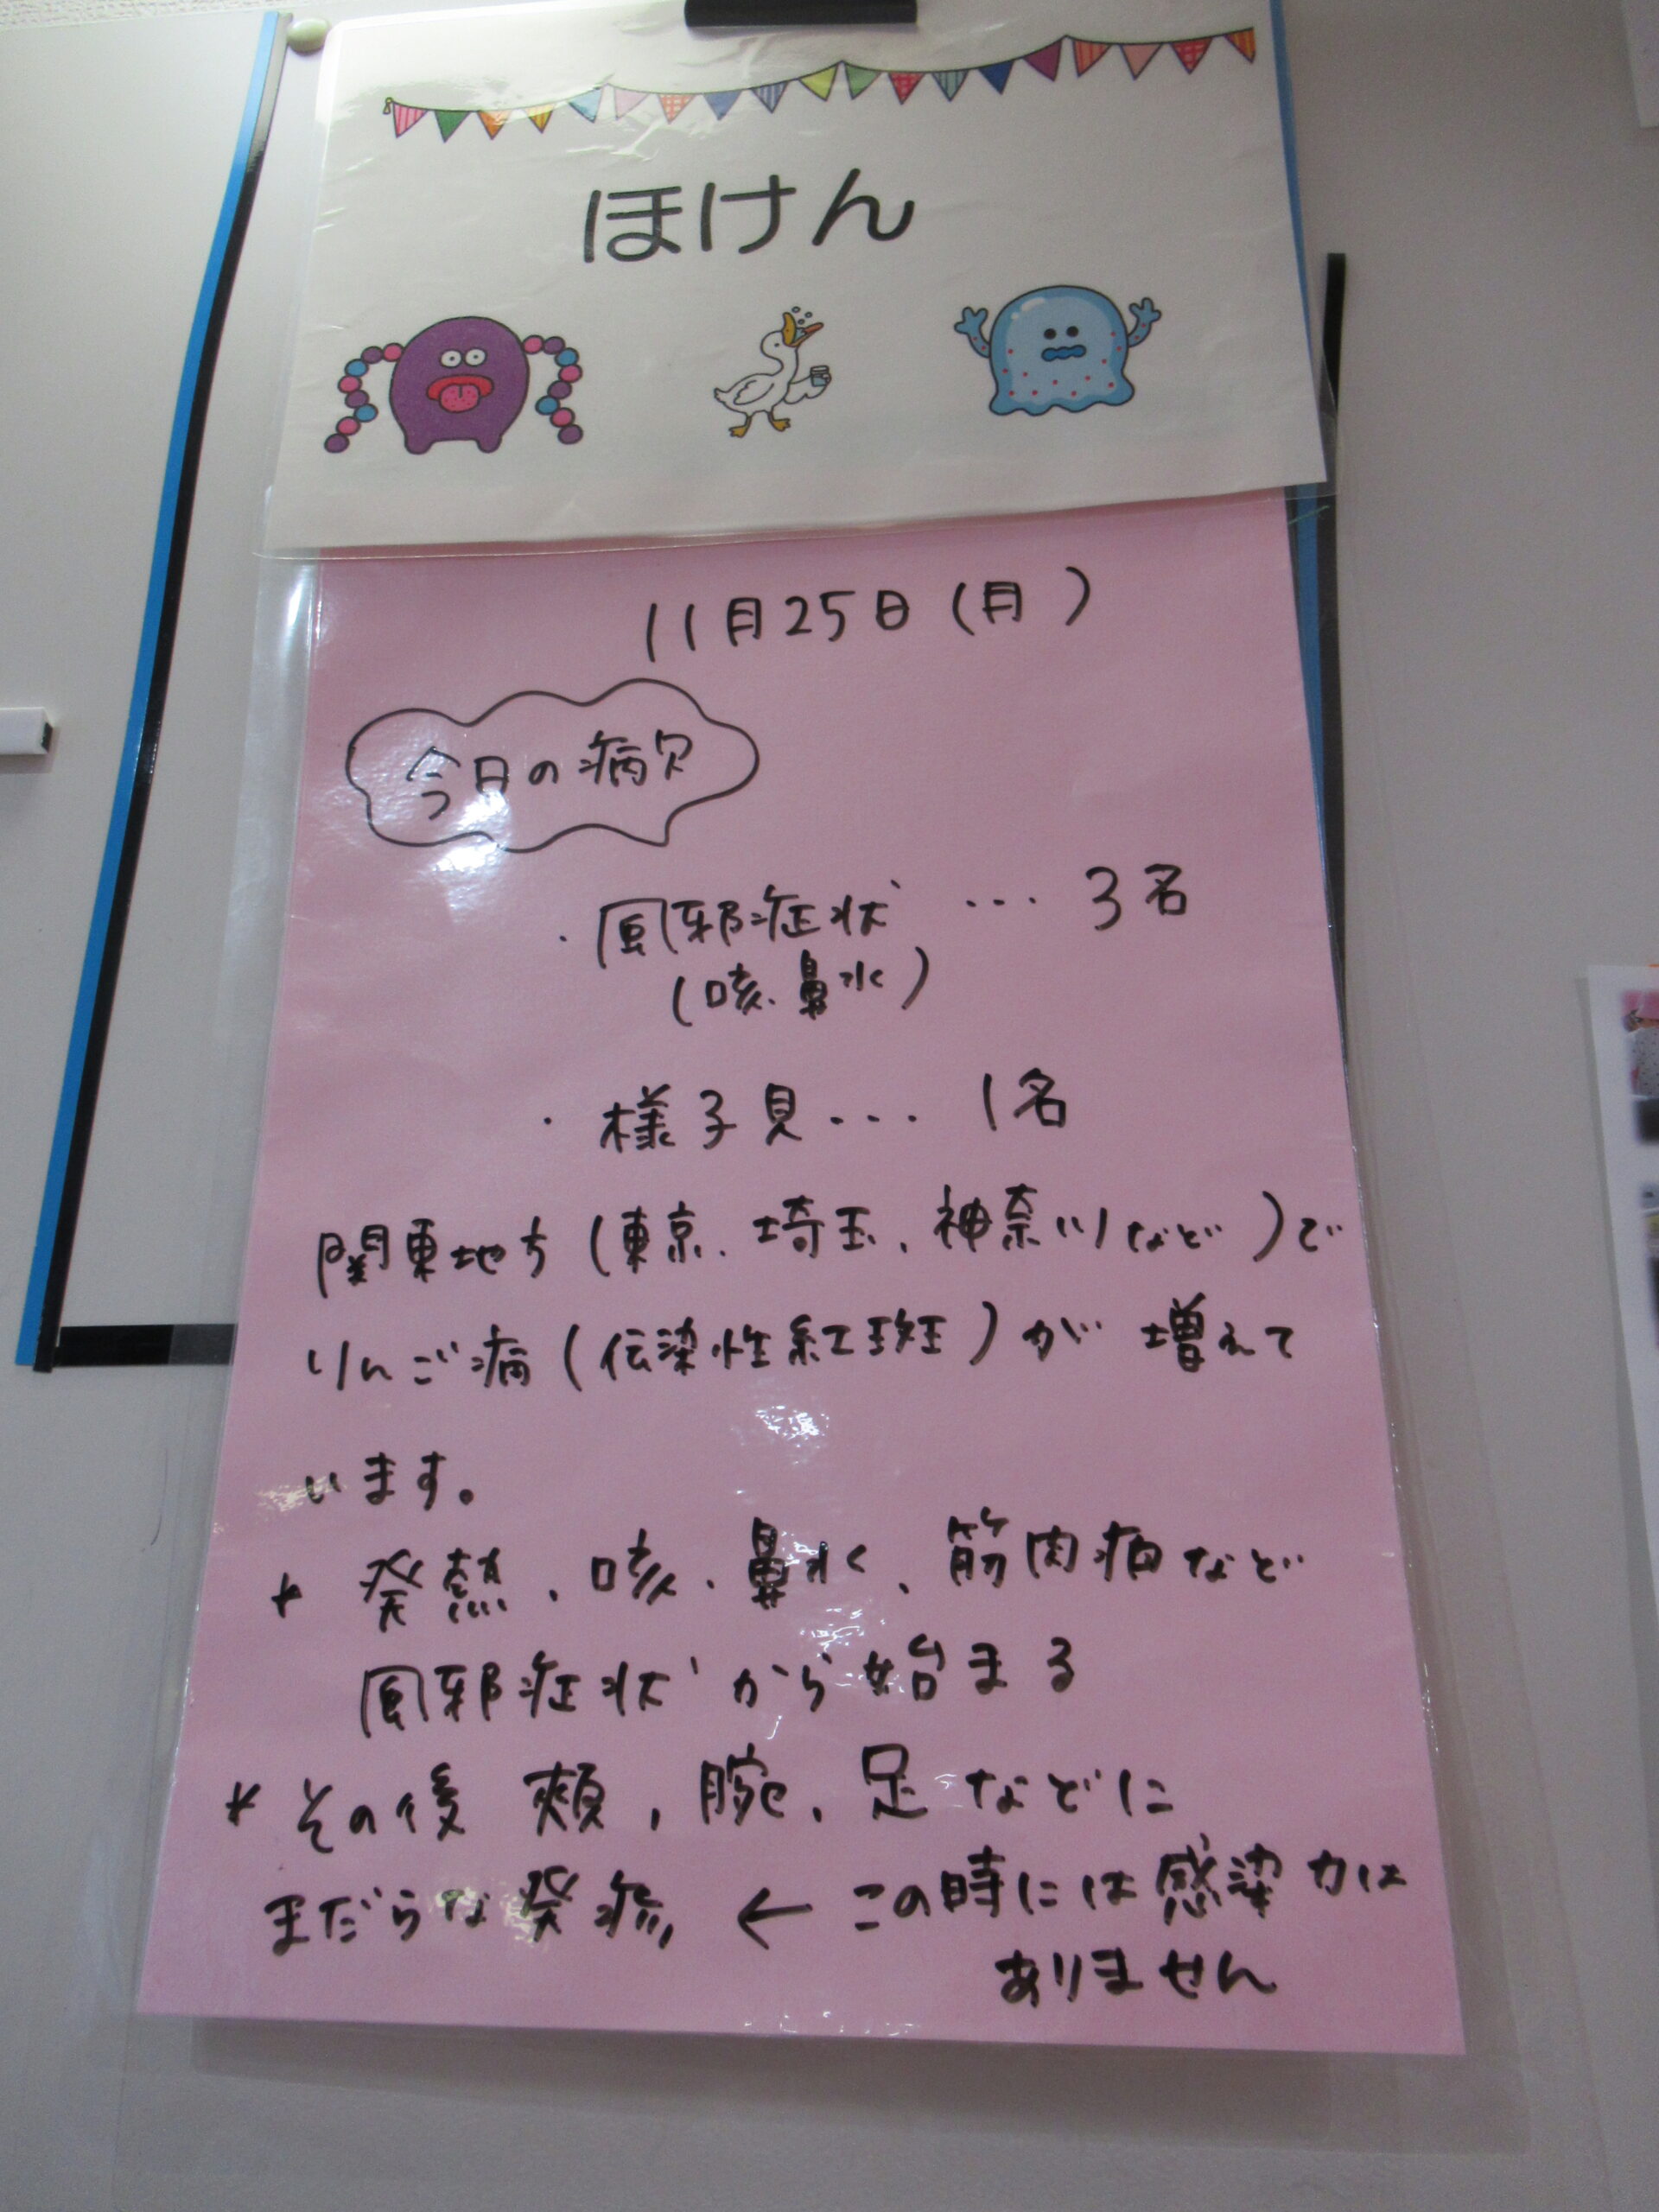 ほけん
11月25日(月)
今日の病欠
・風邪症状 … 3名
(咳、鼻水)
・様子見… 1名
関東地方(東京、埼玉、神奈川など)で
りんご病(伝染性紅斑)が増えて
います。
* 発熱、咳、鼻水、筋肉痛など
風邪症状から始まる
* その後 頬、腕、足などに
まだらな発疹 ← この時には感染力は
ありません